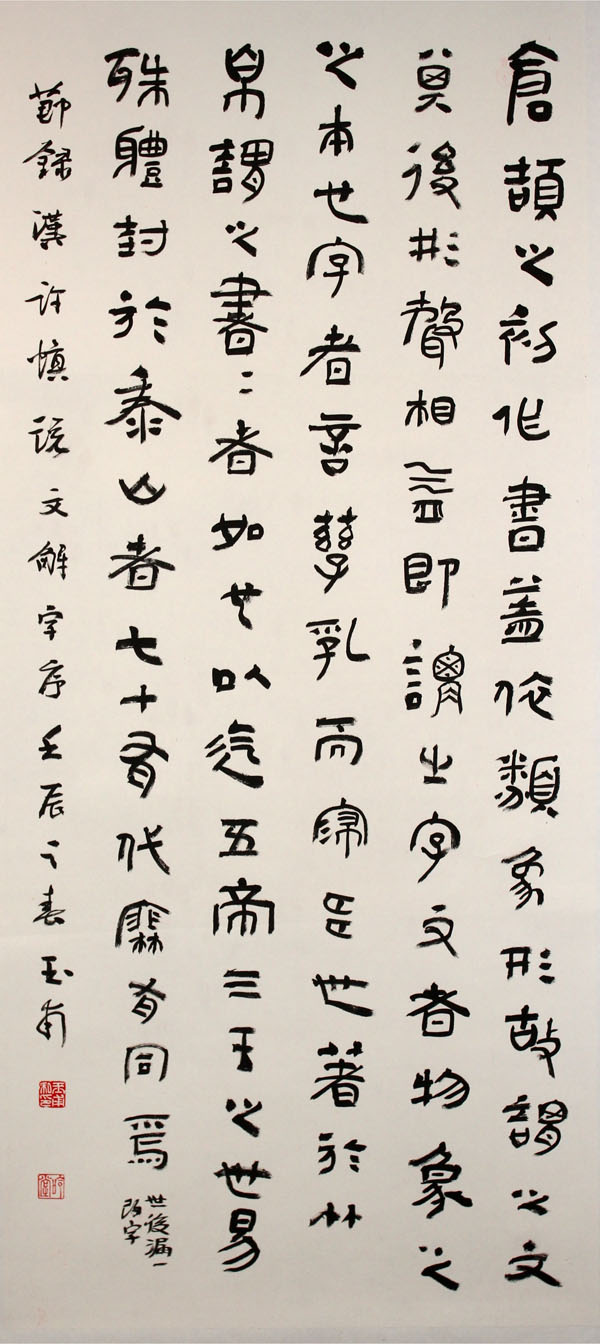 倉頡之初作書蓋依類象形故謂之文
其後形聲相益即謂之字文者物象之
之本也字者言孳乳而寖多也著於竹
帛謂之書〻者如也以迄五帝三王之世易
殊體封於泰山者七十有代靡有同焉
世後漏一
改字
節錄漢許慎說文解字序壬辰之春玉甫